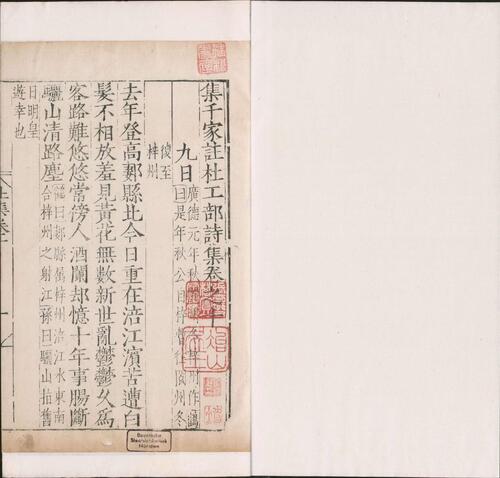 集千家註杜工部詩集卷之十
九日
廣德元年秋
作鶴
曰是年秋公自梓暫往閬州冬
復至
梓州
去年登高郪縣北今日重在涪江濱苦遭白
髮不相放羞見黃花無數新世亂鬱鬱久為
客路難悠悠常傍人酒闌却憶十年事腸斷
驪山清路塵
曰郪縣屬梓州涪江水東南
合梓州之射江
孫曰驪山指舊
日明皇
遊幸也
Bayerische
Staatsbibliothek
München